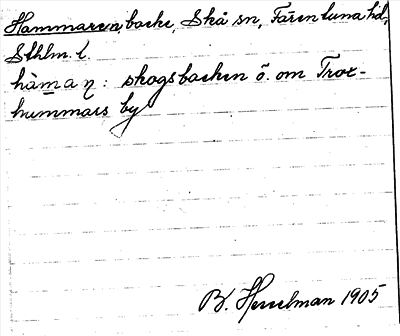 Hammaren, backe, Skå sn, Färentuna hd,
Sthlm. l.
hàmaṇ : skogsbacken ö. om Trox-
hummars by
B. Hesselman 1905